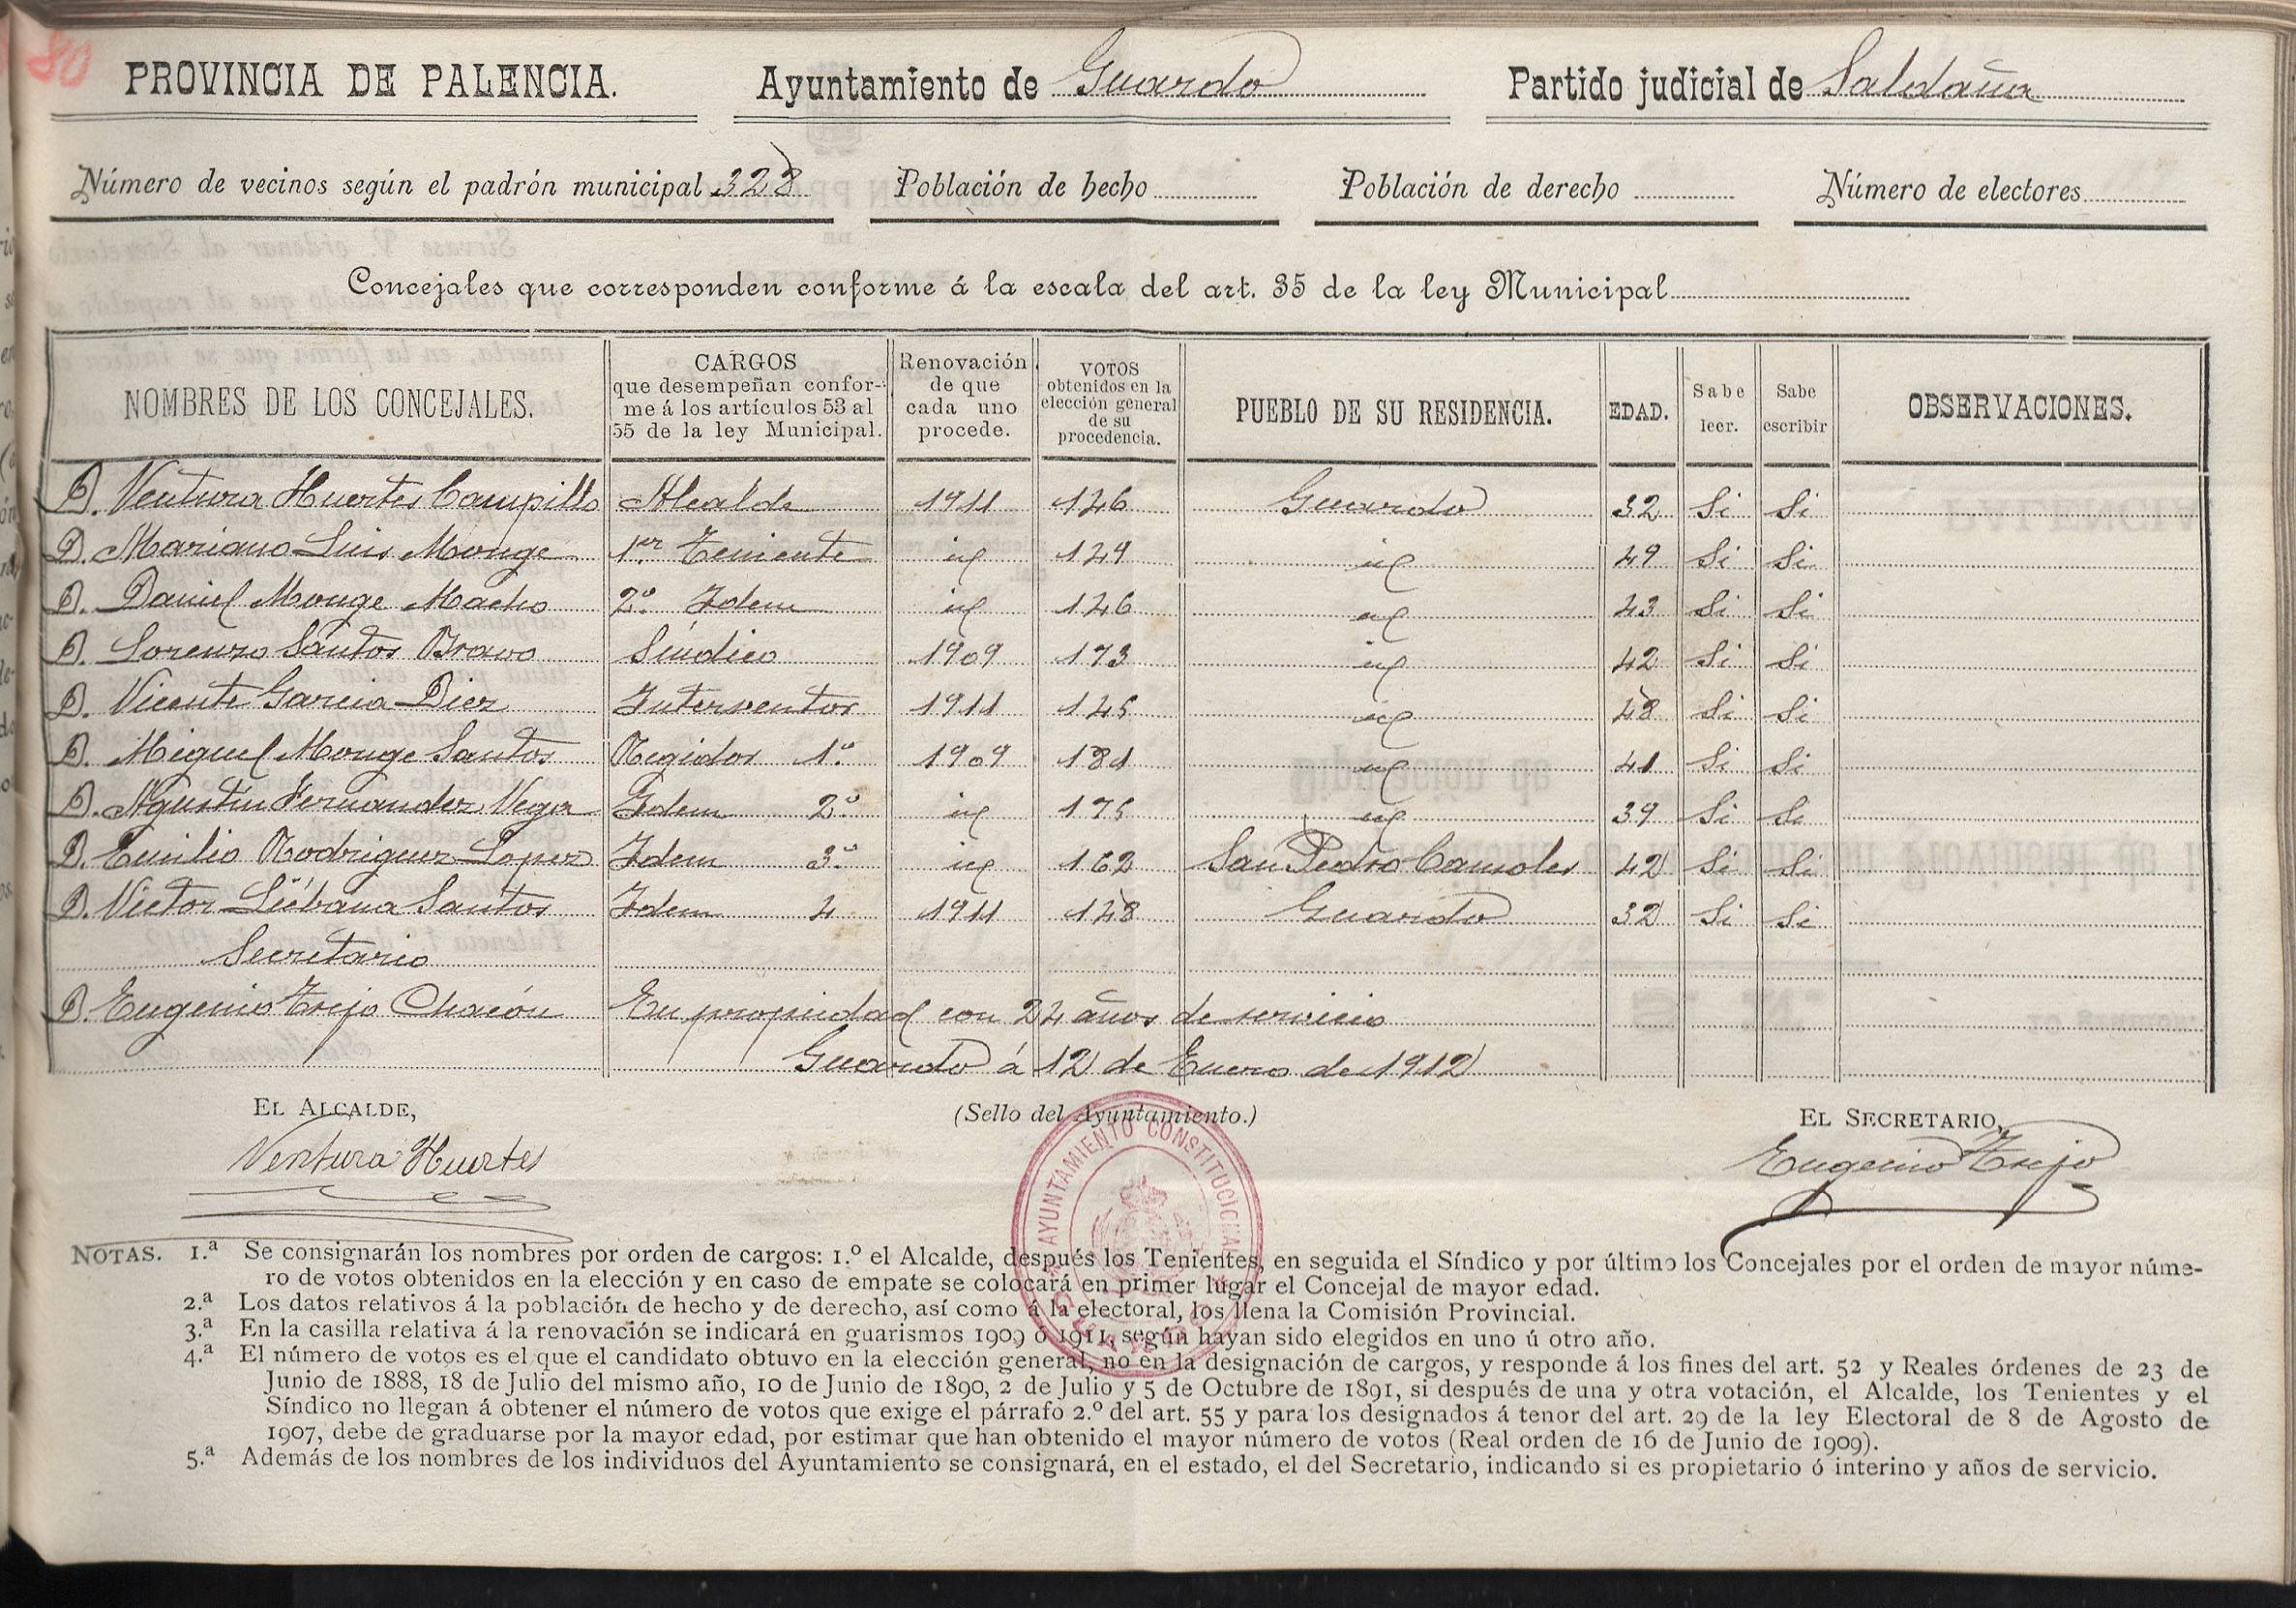 80
PROVINCIA DE PALENCIA. Ayuntamiento de Guardo Partido judicial de Saldaña
Número de vecinos según el padrón municipal 328 Población de hecho Población de derecho Número de electores
Concejales que corresponden conforme á la escala del art. 35 de la ley Municipal
NOMBRES DE LOS CONCEJALES. CARGOS que desempeñan conforme á los artículos 53 al 55 de la ley Municipal. Renovación de que cada uno procede. VOTOS obtenidos en la elección general de su procedencia. PUEBLO DE SU RESIDENCIA. EDAD. Sabe leer. Sabe escribir OBSERVACIONES.
D. Ventura Huertes Campillo Alcalde 1911 126 Guardo 32 Si Si
D. Mariano Luis Monge 1er Teniente id 129 id 49 Si Si
D. Daniel Monge Macho 2º Idem id 126 id 43 Si Si
D. Lorenzo Santos Bravo Síndico 1909 173 id 42 Si Si
D. Vicente Garcia Diez Interventor 1911 125 id 48 Si Si
D. Miguel Monge Santos Regidor 1º 1909 181 id 41 Si Si
D. Agustin Fernandez Vega Idem 2º id 175 id 39 Si Si
D. Emilio Rodriguez Lopez Idem 3º id 162 San Pedro Cansoles 42 Si Si
D. Victor Liébana Santos Idem 4 1911 128 Guardo 32 Si Si
Secretario
D. Eugenio Trejo Chacón En propiedad con 24 años de servicio
Guardo á 12 de Enero de 1912
EL ALCALDE, (Sello del Ayuntamiento.) EL SECRETARIO,
Ventura Huertes Eugenio Trejo
AYUNTAMIENTO CONSTITUCIONAL
NOTAS. 1.ª Se consignarán los nombres por orden de cargos: 1.º el Alcalde, después los Tenientes, en seguida el Síndico y por último los Concejales por el orden de mayor núme-
ro de votos obtenidos en la elección y en caso de empate se colocará en primer lugar el Concejal de mayor edad.
2.ª Los datos relativos á la población de hecho y de derecho, así como á la electoral, los llena la Comisión Provincial.
3.ª En la casilla relativa á la renovación se indicará en guarismos 1909 ó 1911, según hayan sido elegidos en uno ú otro año.
4.ª El número de votos es el que el candidato obtuvo en la elección general, no en la designación de cargos, y responde á los fines del art. 52 y Reales órdenes de 23 de
Junio de 1888, 18 de Julio del mismo año, 10 de Junio de 1890, 2 de Julio y 5 de Octubre de 1891, si después de una y otra votación, el Alcalde, los Tenientes y el
Síndico no llegan á obtener el número de votos que exige el párrafo 2.º del art. 55 y para los designados á tenor del art. 29 de la ley Electoral de 8 de Agosto de
1907, debe de graduarse por la mayor edad, por estimar que han obtenido el mayor número de votos (Real orden de 16 de Junio de 1909).
5.ª Además de los nombres de los individuos del Ayuntamiento se consignará, en el estado, el del Secretario, indicando si es propietario ó interino y años de servicio.